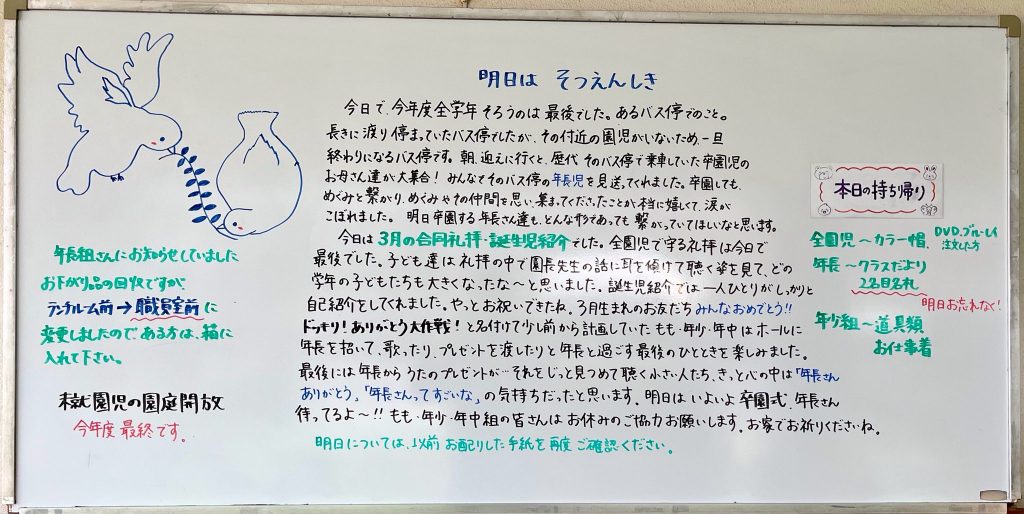 明日は そつえんしき
今日で、今年度全学年 そろうのは 最後でした。あるバス停でのこと。
長きに渡り 停まっていたバス停でしたが、その付近の園児がいないため、一旦
終わりになるバス停です。朝、迎えに行くと、歴代 そのバス停で乗車していた卒園児の
お母さん達が大集合! みんなでそのバス停の年長児を見送ってくれました。卒園しても、
めぐみと繋がり、めぐみやその仲間を思い、集まってくださったことが、本当に嬉しくて、涙が
こぼれました。 明日卒園する年長さん達も、どんな形であっても 繋がっていてほしいなと思います。
今日は 3月の合同礼拝・誕生児紹介でした。全園児で守る礼拝は今日で
最後でした。子ども達は 礼拝の中で園長先生の話に耳を傾けて聴く姿を見て、どの
学年の子どもたちも大きくなったな~と思いました。誕生児紹介では 一人ひとりがしっかりと
自己紹介をしてくれました。やっとお祝いできたね。3月生まれのお友だち みんなおめでとう!!
ドッキリ!ありがとう大作戦! と名付けて少し前から計画していた もも・年少・年中はホールに
年長を招いて、歌ったり、プレゼントを渡したりと年長と過ごす最後のひとときを楽しみました。
最後には年長から うたのプレゼントが…それをじっと見つめて聴く小さい人たち、きっと心の中は「年長さん
ありがとう」「年長さんってすごいな」の気持ちだったと思います。明日は いよいよ 卒園式、年長さん
待ってるよ~!! もも・年少・年中組の皆さんは お休みのご協力お願いします。お家でお祈りくださいね。
明日については、以前 お配りした手紙を再度 ご確認ください。
年長組さんにお知らせしていました
お下がり品の回収ですが、
ランチルーム前→職員室前に
変更しましたので、ある方は、箱に
入れて下さい。
未就園児の園庭開放
今年度 最終です。
本日の持ち帰り
全園児~カラー帽、DVD、ブルーレイ
注文した方
年長~クラスだより
2名目名札
明日お忘れなく!
年少組~道具類
お仕事着